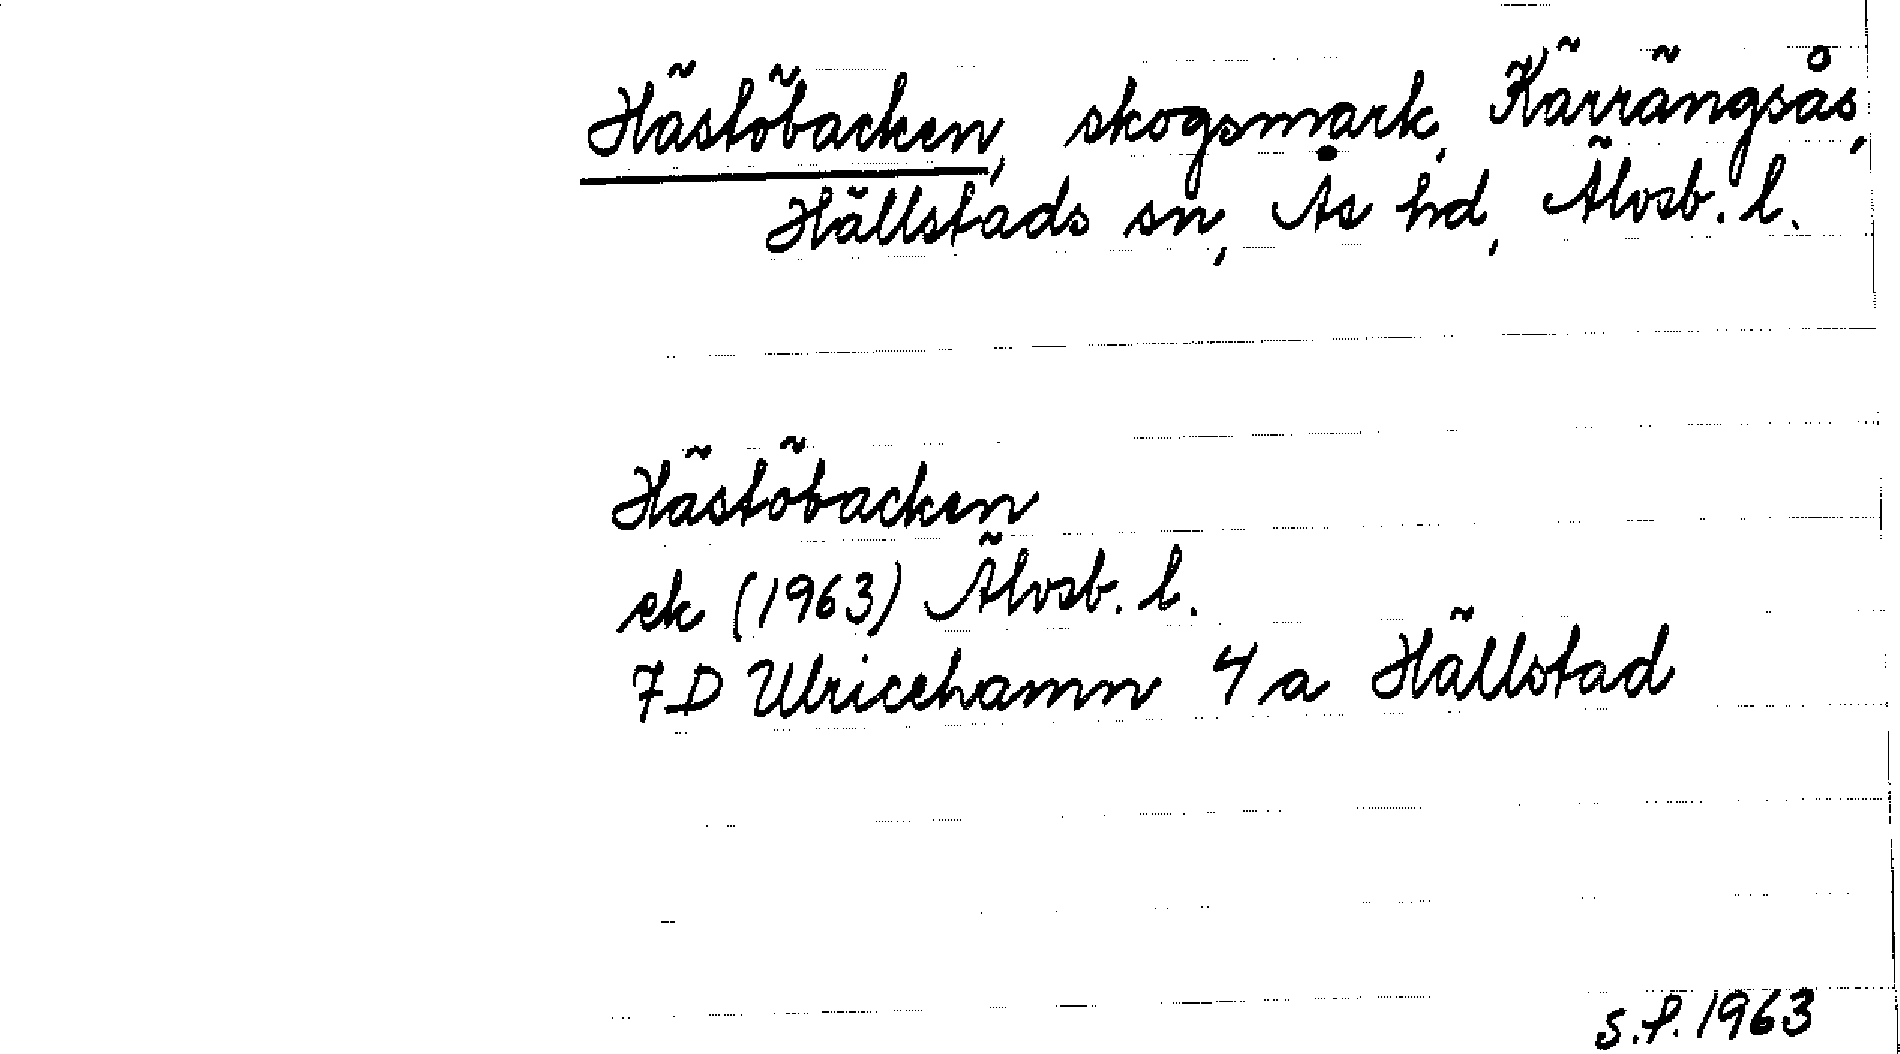 Hästöbacken, skogsmark, Kärrängsås,
Hällstads sn, Ås hd, Älvsb. l.
Hästöbacken
ek (1963) Älvsb. l.
7D Ulricehamn 4a Hällstad
S.P. 1963